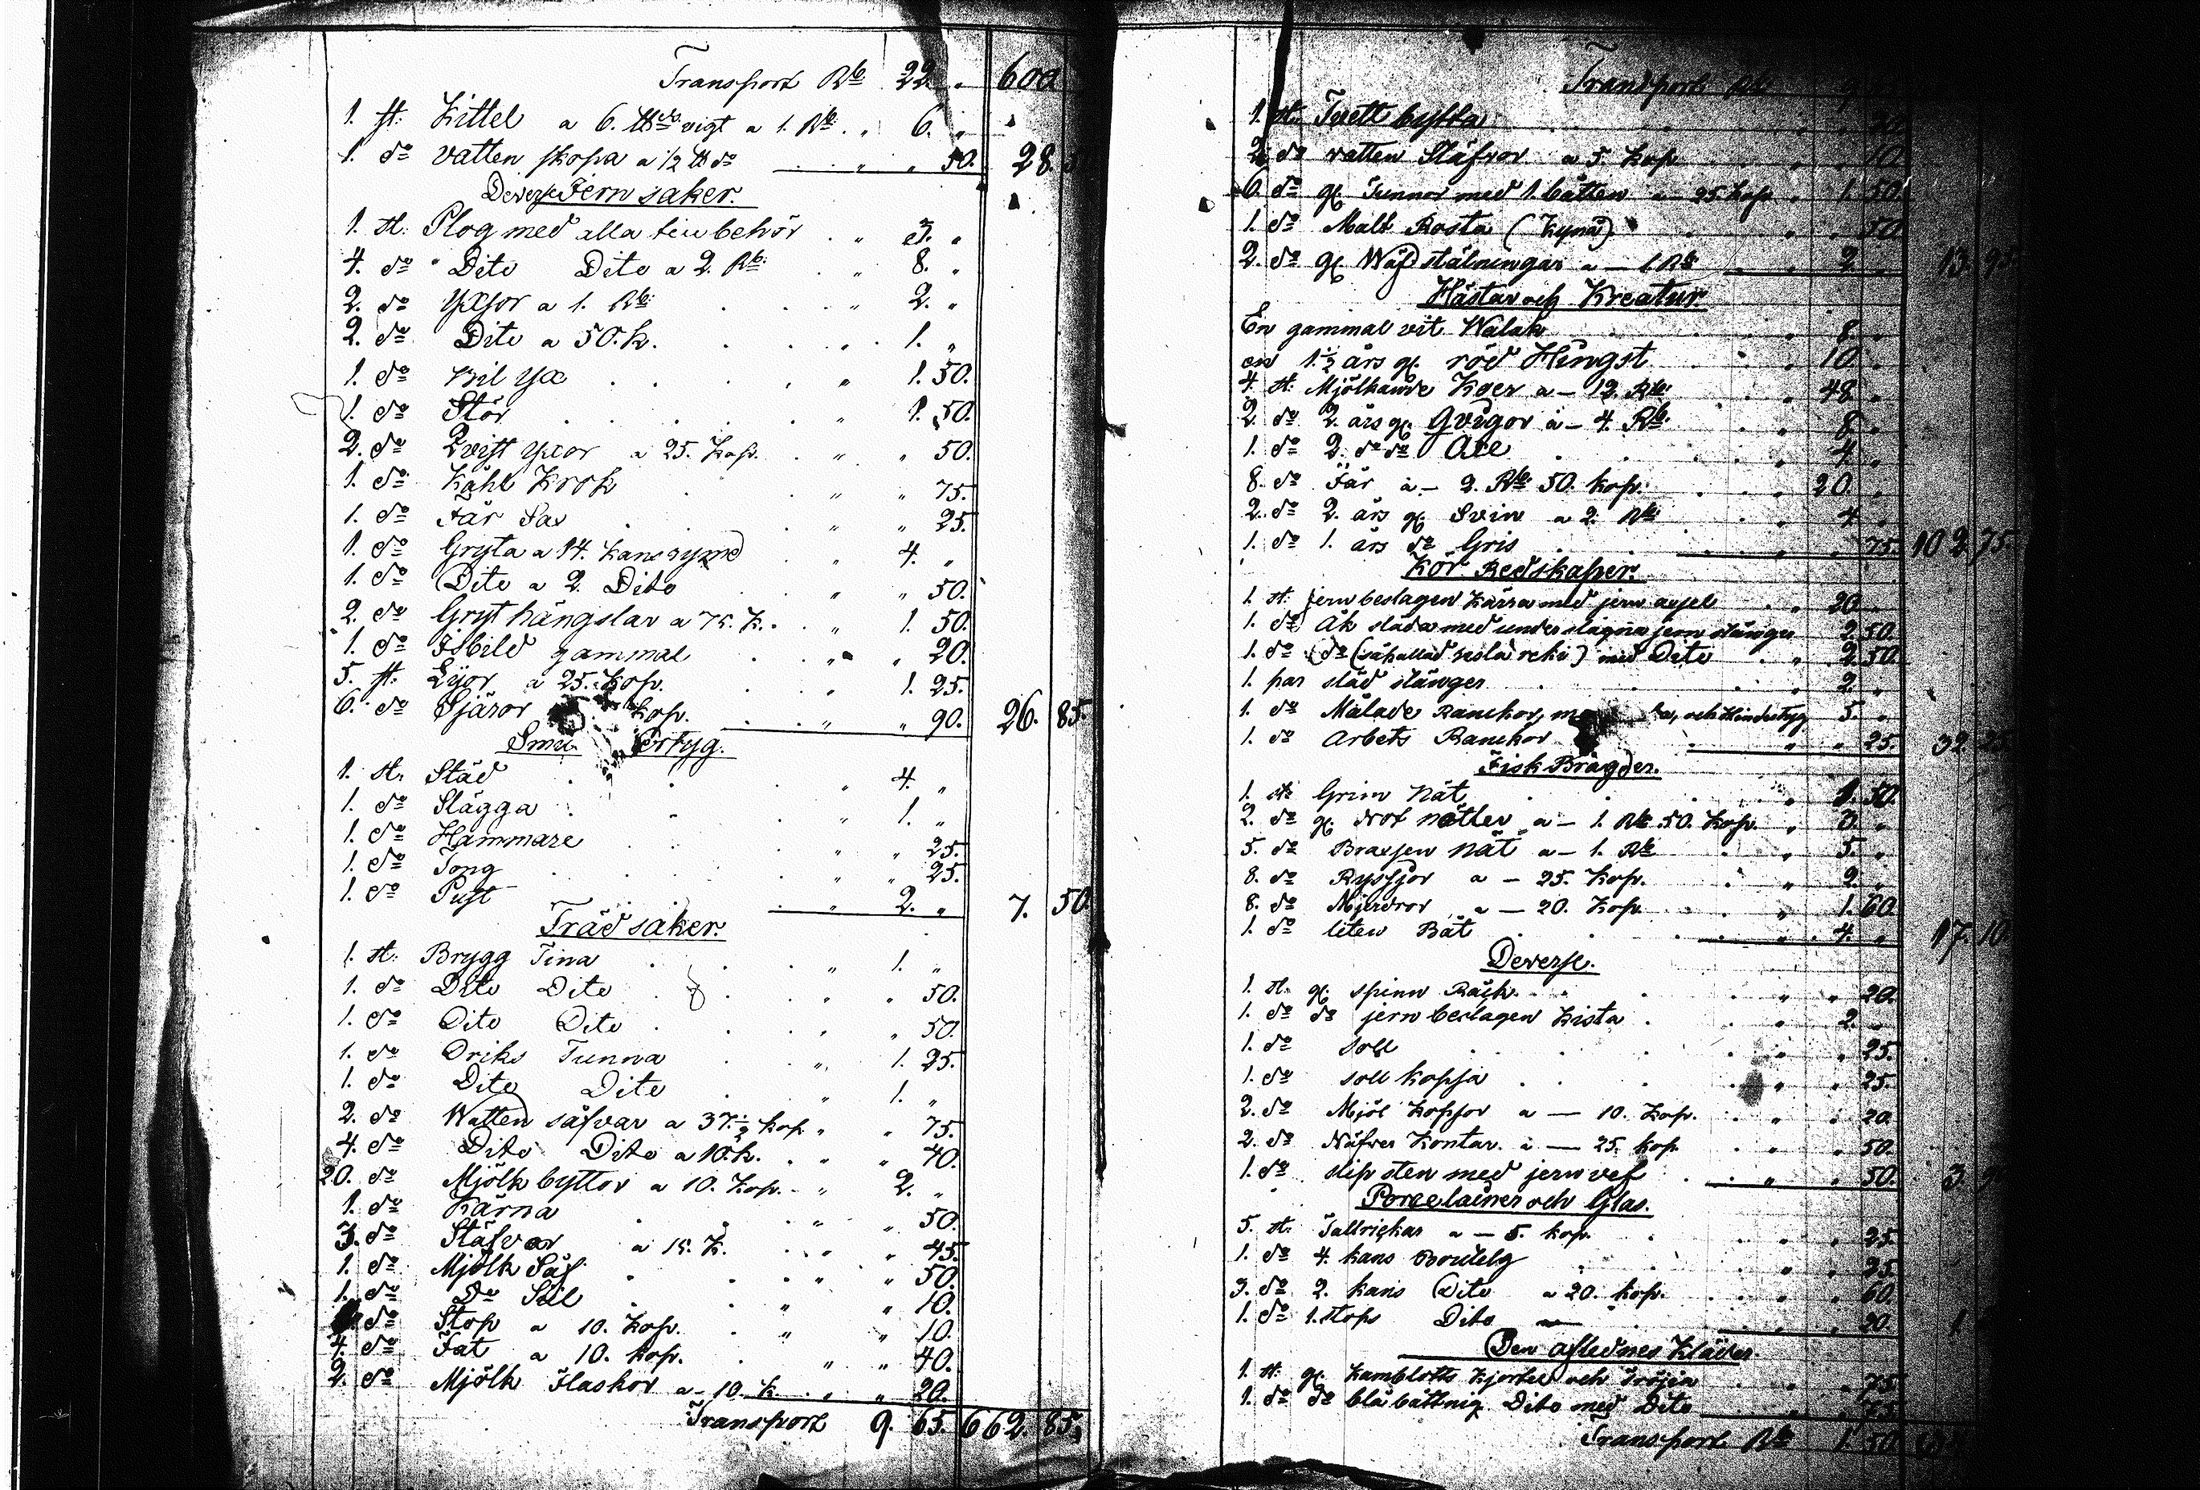 Transport Rb: 22. „ 600
1. st: Kittel a 6. ℔ds vigt a 1. Rb. „ 6. „
1. do vatten skopa a 1/2 ℔ do „ „ 50. 28. 50
Deverse Jern saker.
1. st: Plog med alla tillbehör „ 3. „
4. do Dito Dito a 2. Rb: 8. „
2. do Yxor a 1. Rb: „ 2. „
2. do Dito a 50. k. „ 1. „
1. do Bil Yx „ 1. 50.
1. do Stör „ 1. 50.
2. do Qvist yxor a 25. Kop. „ „ 50.
1. do Kåhl Krok „ „ 75.
1. do Får Sax „ „ 25.
1. do Gryta a 14. kans rymd „ 4. „
1. do Dito a 2. Dito „ „ 50.
2. do Gryt hängslar a 75. K. „ 1. 50.
1. do Isbild gammal „ „ 20.
5. st. Lyor a 25. Kop. „ 1. 25.
6. do Skäror Kop. „ „ 90. 26. 85.
Smed Vertyg.
1. st. Städ „ 4. „
1. do Slägga „ 1. „
1. do Hammare „ „ 25.
1. do Tong „ „ 25.
1. do Pust „ 2. „ 7. 50
Träd saker.
1. st: Brygg Tina „ 1. „
1. do Dito Dito „ „ 50.
1. do Dito Dito „ „ 50.
1. do Driks Tunna „ 1. 25.
1. do Dito Dito „ 1. „
2. do Watten såfvar a 37. 1/2 kop „ „ 75.
4. do Dito Dito a 10. k. „ „ 40.
20. do Mjölk byttor a 10. Kop. „ 2. „
1. do Kärna „ „ 50.
3. do Stäfvor a 15. K. „ „ 45.
1. do Mjölk Såf „ „ 50.
1. do Do Sil „ „ 10.
1. do Stop a 10. Kop. „ „ 10.
4. do Fat a 10. kop. „ „ 40.
2. do Mjölk Flaskor a 10. k „ „ 20.
Transport 9. 65. 662. 85.
Transport Rb 9
1. st. Tvett bytta
2. do vatten Stäfvor a 5. Kop „ „ 10.
6. do gl. Tunnor med 1. båtten a 25. kop „ 1. 50.
1. do Malt Rosta (Kynä) „ „ 50
2. do gl. Wäfstälningar a — 1. Rb „ 2. „ 13. 95.
Hästar och Kreatur.
En gammal vit Walak 8. „
en 1 1/2 års gl. röd Hingst 10. „
4. st: Mjölkande Koer a — 12. Rb: „ 48. „
2. do 2. års gl. Qvigor à — 4. Rb. „ 8. „
1. do 2. do do Oxe „ 4. „
8. do Får à — 2. Rb 50. kop. „ 20. „
2. do 2. års gl. Svin a 2. Rb „ 4. „
1. do 1. års do Gris „ „ 75. 102. 75.
Kör Redskaper.
1. st: jern beslagen kärra med jern axjel „ 20. „
1. do Åk släda med underslagna jern stänger 2. 50.
1. do do (såkallad resla reki) med Dito „ 2. 50.
1. par släd stänger „ 2. „
1. do Målade Ranckor, och Hindertyg 5. „
1. do Arbets Ranckor „ „ 25. 32. 25
Fisk Brägder.
1. st Grim Nät „ 1. 50.
2. do gl. Not nötter a — 1. Rb. 50. Kop. „ 3. „
5. do Braxsen Nät a — 1. Rb „ 5. „
8. do Ryssjor a — 25. Kop. „ 2. „
8. do Mjerdror a — 20. Kop. „ 1. 60.
1. do liten Båt „ 4. „ 17. 10.
Deverse.
1. st. gl. spinn Råck. „ „ 20.
1. do do jern beslagen Kista „ 2. „
1. do soll „ 25.
1. do soll kopsa „ „ 25.
2. do Mjöl Kopsor a — 10. Kop. „ „ 20.
2. do Näfver Kontar à — 25. kop. „ „ 50.
1. do slip sten med jern vef „ „ 50. 3.
Porcelainer och Glas.
5. st. Tallrickar a — 5. kop. „ „ 25.
1. do 4. kans Boutelg „ „ 25.
3. do 2. kans Dito a 20. kop. „ „ 60.
1. do 1. stops Dito „ „ 20. 1
Den aflednes Kläder
1. st. gl. kamblotts kjortel och Tröjea „ „ 75.
1. do do blåbåttnig Dito med Dito „ „ 75.
Transport Rb 1. 50.